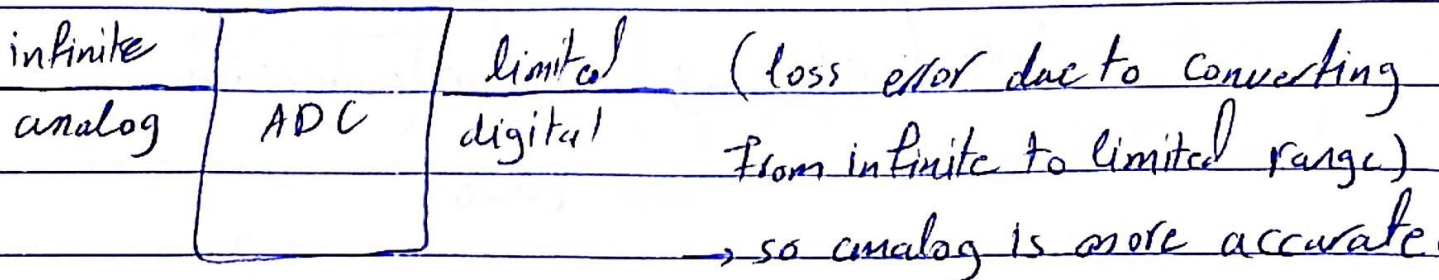 infinite
analog
ADC
limited
digital
(loss error due to converting
from infinite to limited range)
→ so analog is more accurate.